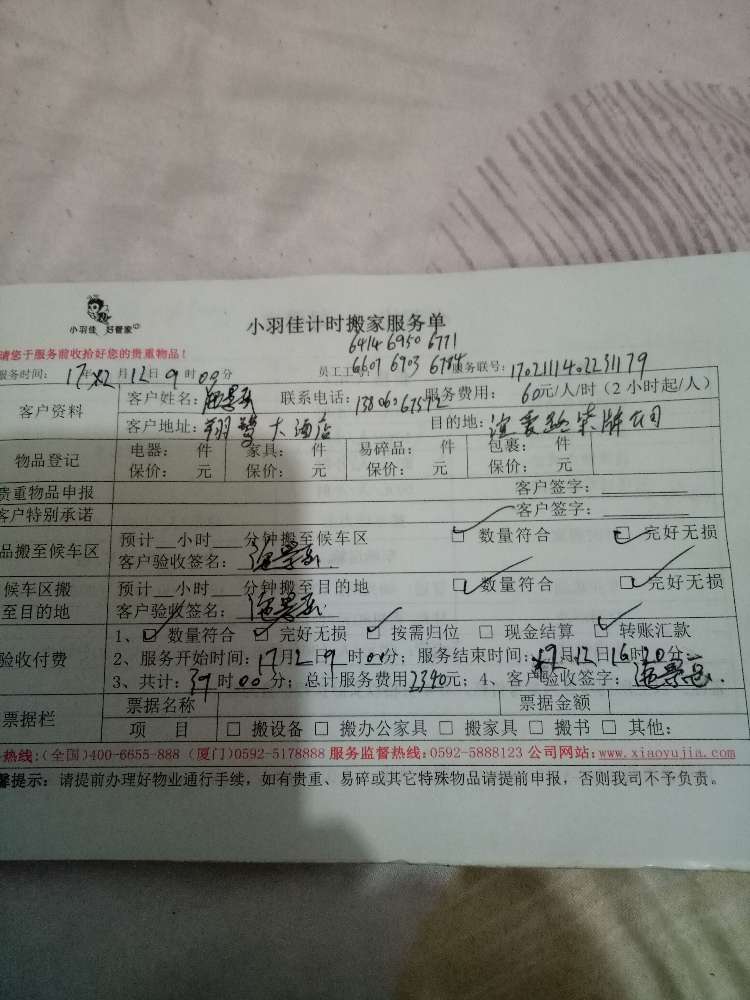 小羽佳 好管家
小羽佳计时搬家服务单
6414 6950 6771
请您于服务前收拾好您的贵重物品！
6607 6903 6784
服务时间： 17年12月12日9时00分 员工工号： 服务联号：1702111402231179
客户资料 客户姓名： 联系电话： 服务费用： 60元/人/时（2小时起/人）
客户地址： 大酒店 目的地：
物品登记 电器： 件 家具： 件 易碎品： 件 包裹： 件
保价： 元 保价： 元 保价： 元 保价： 元
贵重物品申报 客户签字：
客户特别承诺 客户签字：
品搬至候车区 预计 小时 分钟搬至候车区 数量符合 完好无损
客户验收签名：
候车区搬至目的地 预计 小时 分钟搬至目的地 数量符合 完好无损
客户验收签名：
验收付费 1、 数量符合 完好无损 按需归位 现金结算 转账汇款
2、服务开始时间： 月12日9时00分；服务结束时间： 月12日16时20分
3、共计：39时00分；总计服务费用2340元；4、客户验收签字：
票据栏 票据名称 票据金额
项 目 搬设备 搬办公家具 搬家具 搬书 其他：
热线：(全国)400-6655-888 (厦门)0592-5178888 服务监督热线：0592-5888123 公司网站：www.xiaoyujia.com
馨提示：请提前办理好物业通行手续，如有贵重、易碎或其它特殊物品请提前申报，否则我司不予负责。